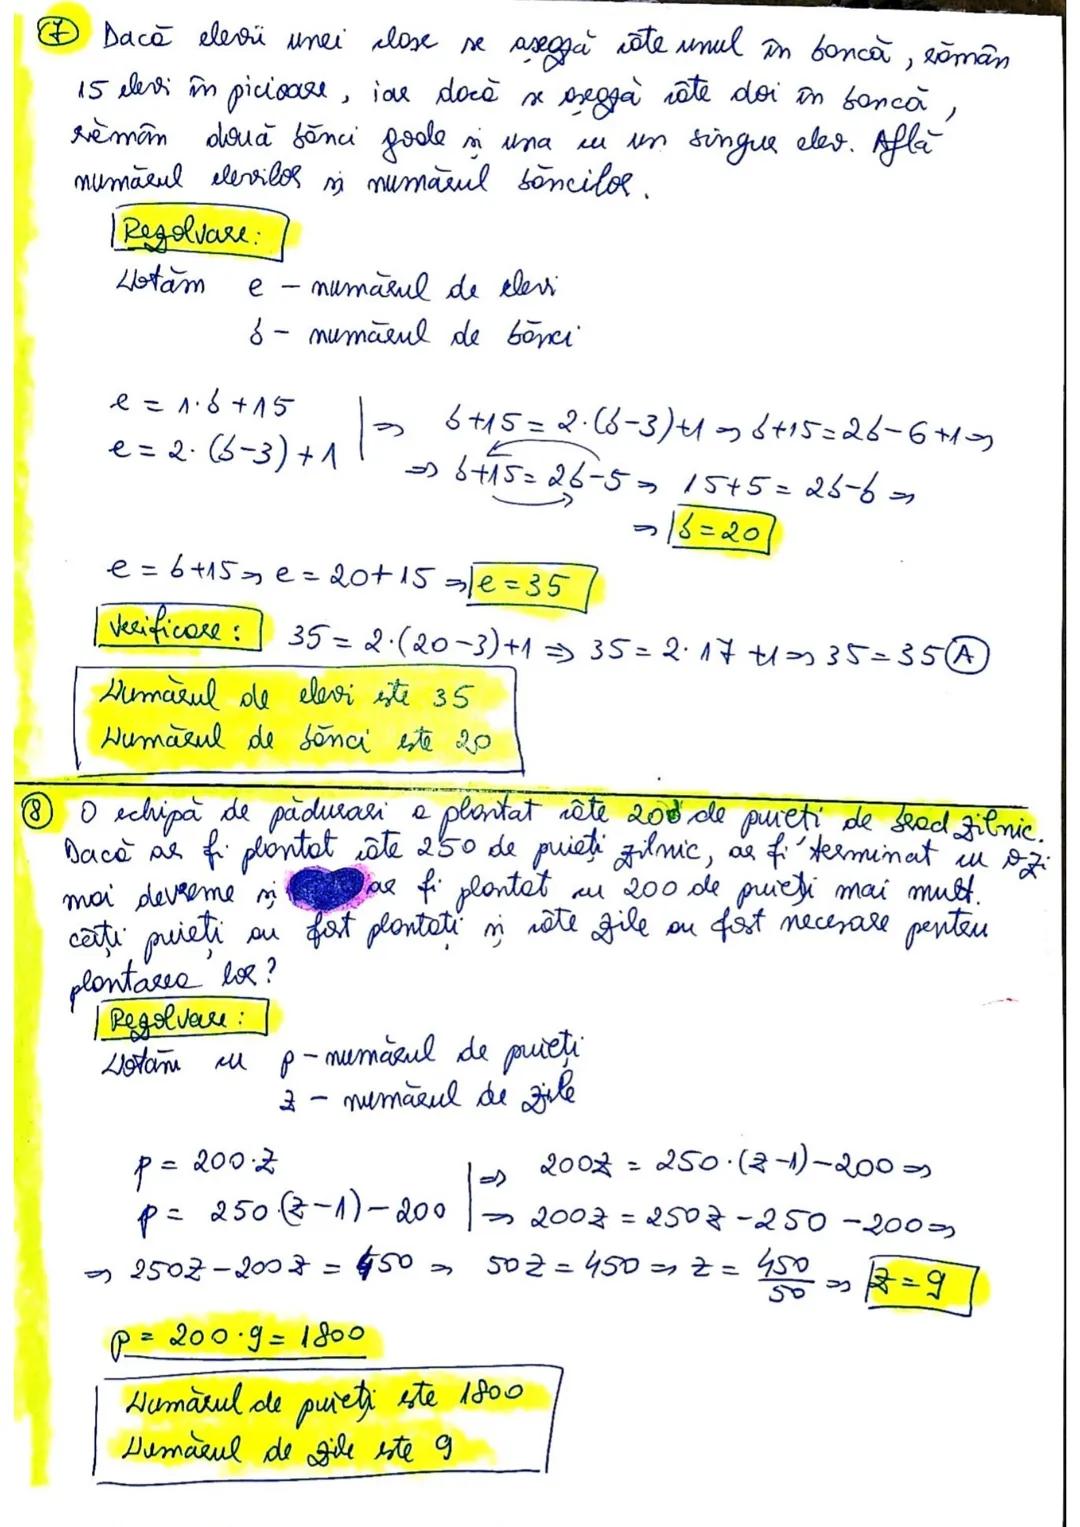 ⑦ Dacă elevii unei clase se așează câte unul în bancă, rămân
15 elevi în picioare, iar dacă se așează câte doi în bancă,
rămân două bănci goale și una cu un singur elev. Află
numărul elevilor și numărul băncilor.
Rezolvare:
Notăm e - numărul de elevi
b - numărul de bănci
e = 1·b+15 |⇒ b+15 = 2·(b-3)+1 ⇒ b+15=2b-6+1 ⇒
e = 2·(b-3)+1 ⇒ b+15=2b-5 ⇒ 15+5=2b-b ⇒
⇒ b=20
e = b+15 ⇒ e = 20+15 ⇒ e=35
Verificare: 35=2·(20-3)+1 ⇒ 35=2·17+1 ⇒ 35=35 Ⓐ
Numărul de elevi este 35
Numărul de bănci este 20
⑧ O echipă de pădurari a plantat câte 200 de puieți de brad zilnic.
Dacă ar fi plantat câte 250 de puieți zilnic, ar fi terminat cu o zi
mai devreme și ar fi plantat cu 200 de puieți mai mult.
câți puieți au fost plantați și câte zile au fost necesare pentru
plantarea lor?
Rezolvare:
Notăm cu p - numărul de puieți
z - numărul de zile
p = 200·z |⇒ 200z = 250·(z-1)-200 ⇒
p = 250·(z-1)-200 |⇒ 200z = 250z-250-200 ⇒
⇒ 250z-200z = 450 ⇒ 50z=450 ⇒ z = 450/50 ⇒ z=9
p = 200·9 = 1800
Numărul de puieți este 1800
Numărul de zile este 9